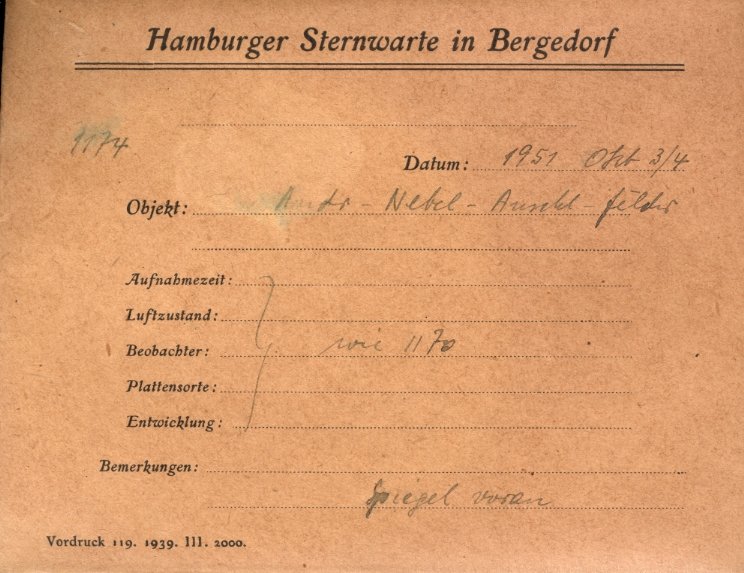 Hamburger Sternwarte in Bergedorf
1174
Datum: 1951 Okt 3/4
Objekt: Andr-Nebel-Anschl-felder
Aufnahmezeit:
Luftzustand:
Beobachter: wie 1170
Plattensorte:
Entwicklung:
Bemerkungen:
Spiegel voran
Vordruck 119. 1939. III. 2000.